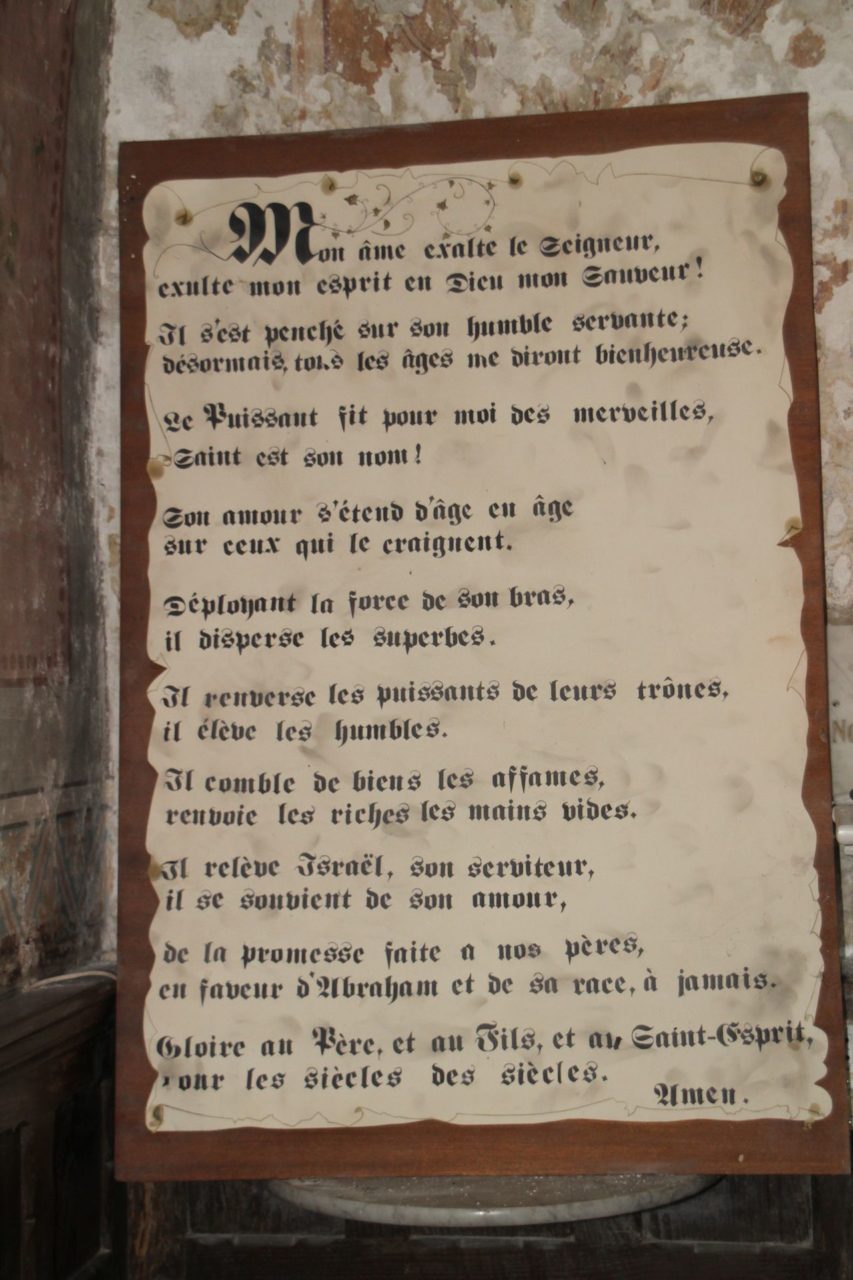 Mon âme exalte le Seigneur,
exulte mon esprit en Dieu mon Sauveur!
Il s'est penché sur son humble servante;
désormais, tous les âges me diront bienheureuse.
Le Puissant fit pour moi des merveilles,
Saint est son nom!
Son amour s'étend d'âge en âge
sur ceux qui le craignent.
Déployant la force de son bras,
il disperse les superbes.
Il renverse les puissants de leurs trônes,
il élève les humbles.
Il comble de biens les affames,
renvoie les riches les mains vides.
Il relève Israël, son serviteur,
il se souvient de son amour,
de la promesse faite a nos pères,
en faveur d'Abraham et de sa race, à jamais.
Gloire au Père, et au Fils, et au Saint-Esprit,
pour les siècles des siècles.
Amen.